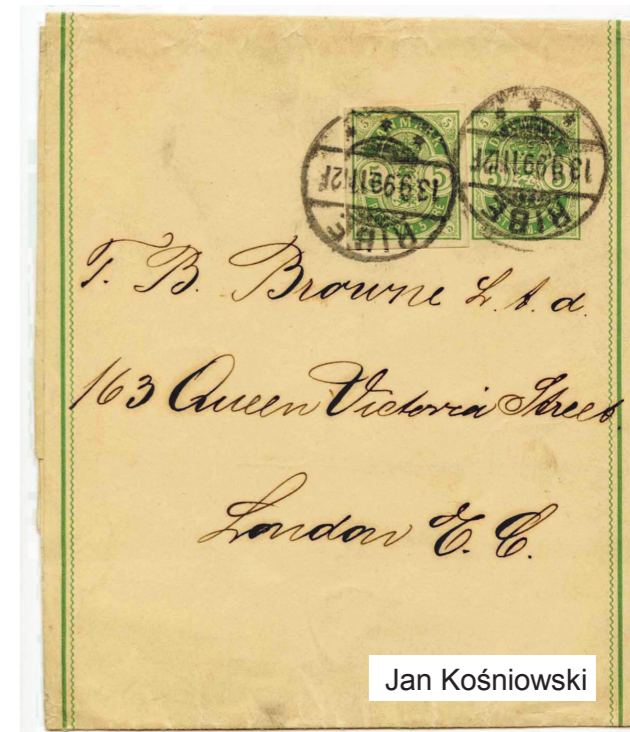 DANMARK
5 5
13.9.99.11-12F
RIBE
13.9.99.11-12F
RIBE
T. B. Browne L.t.d.
163 Queen Victoria Street.
London E. C.
Jan Kośniowski